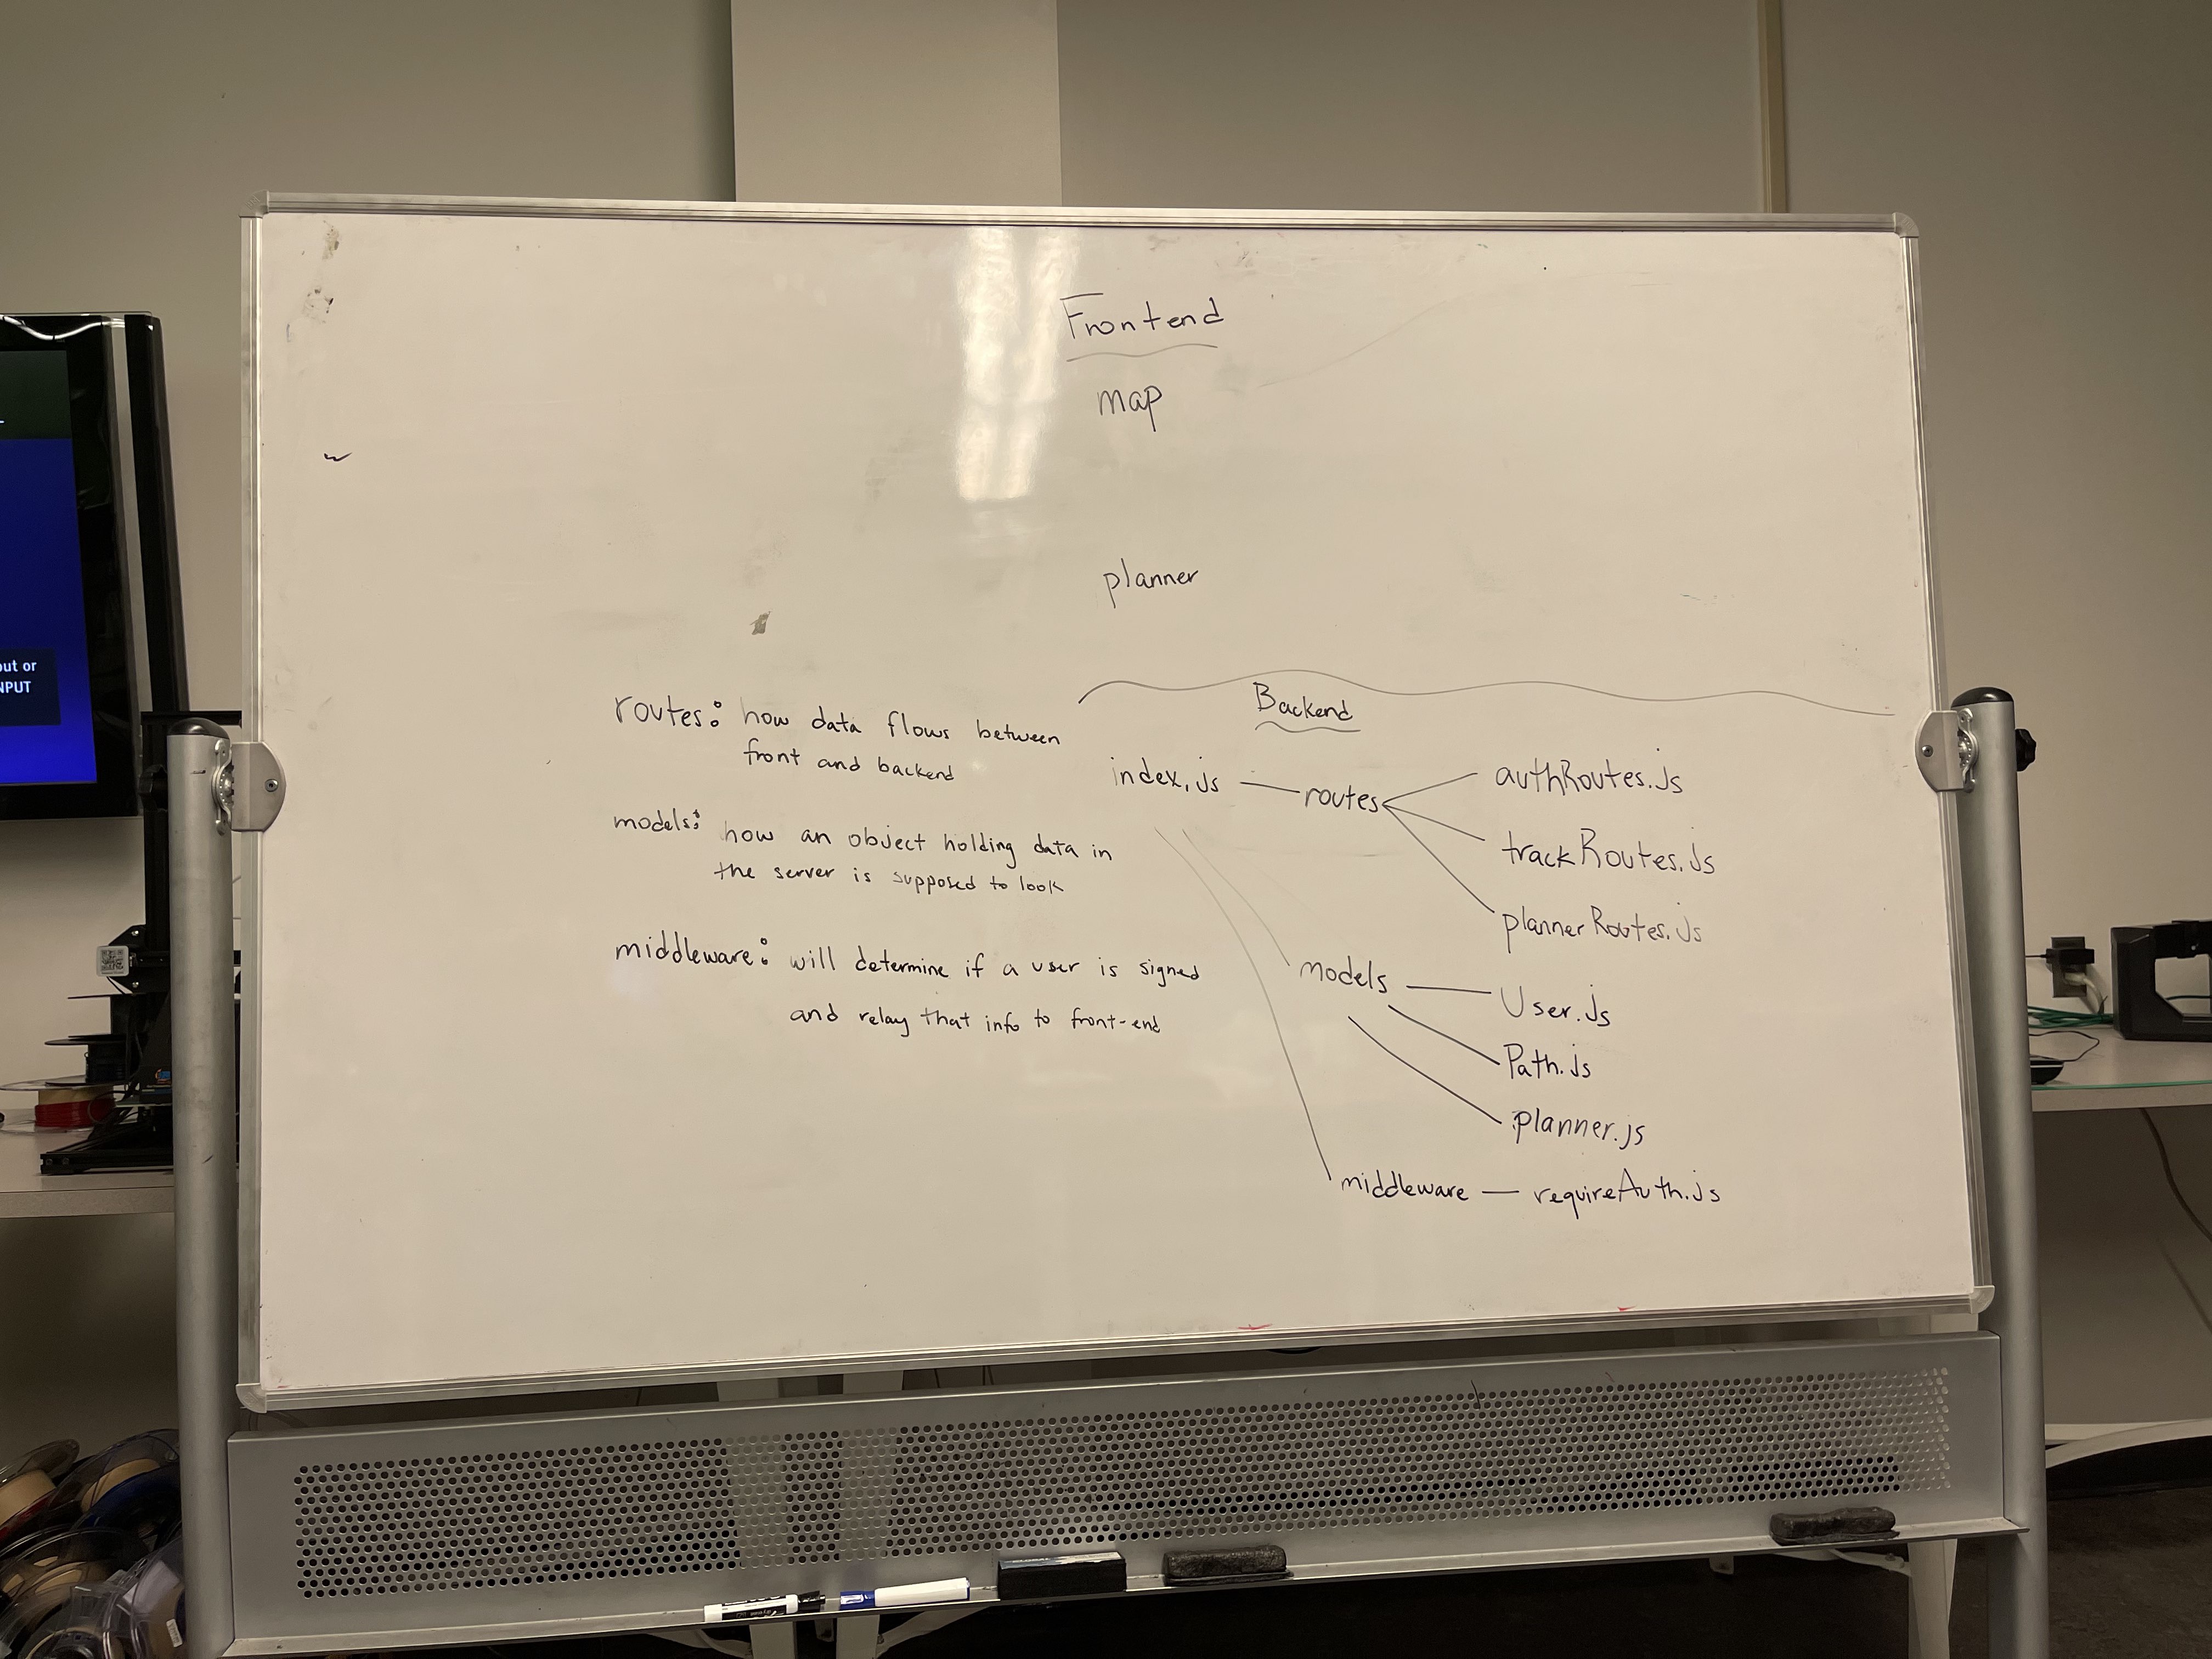 Frontend
map
planner
routes: how data flows between
front and backend
models: how an object holding data in
the server is supposed to look
middleware: will determine if a user is signed
and relay that info to front-end
Backend
index.js
routes
authRoutes.js
trackRoutes.js
plannerRoutes.js
models
User.js
Path.js
planner.js
middleware — requireAuth.js
out or
NPUT